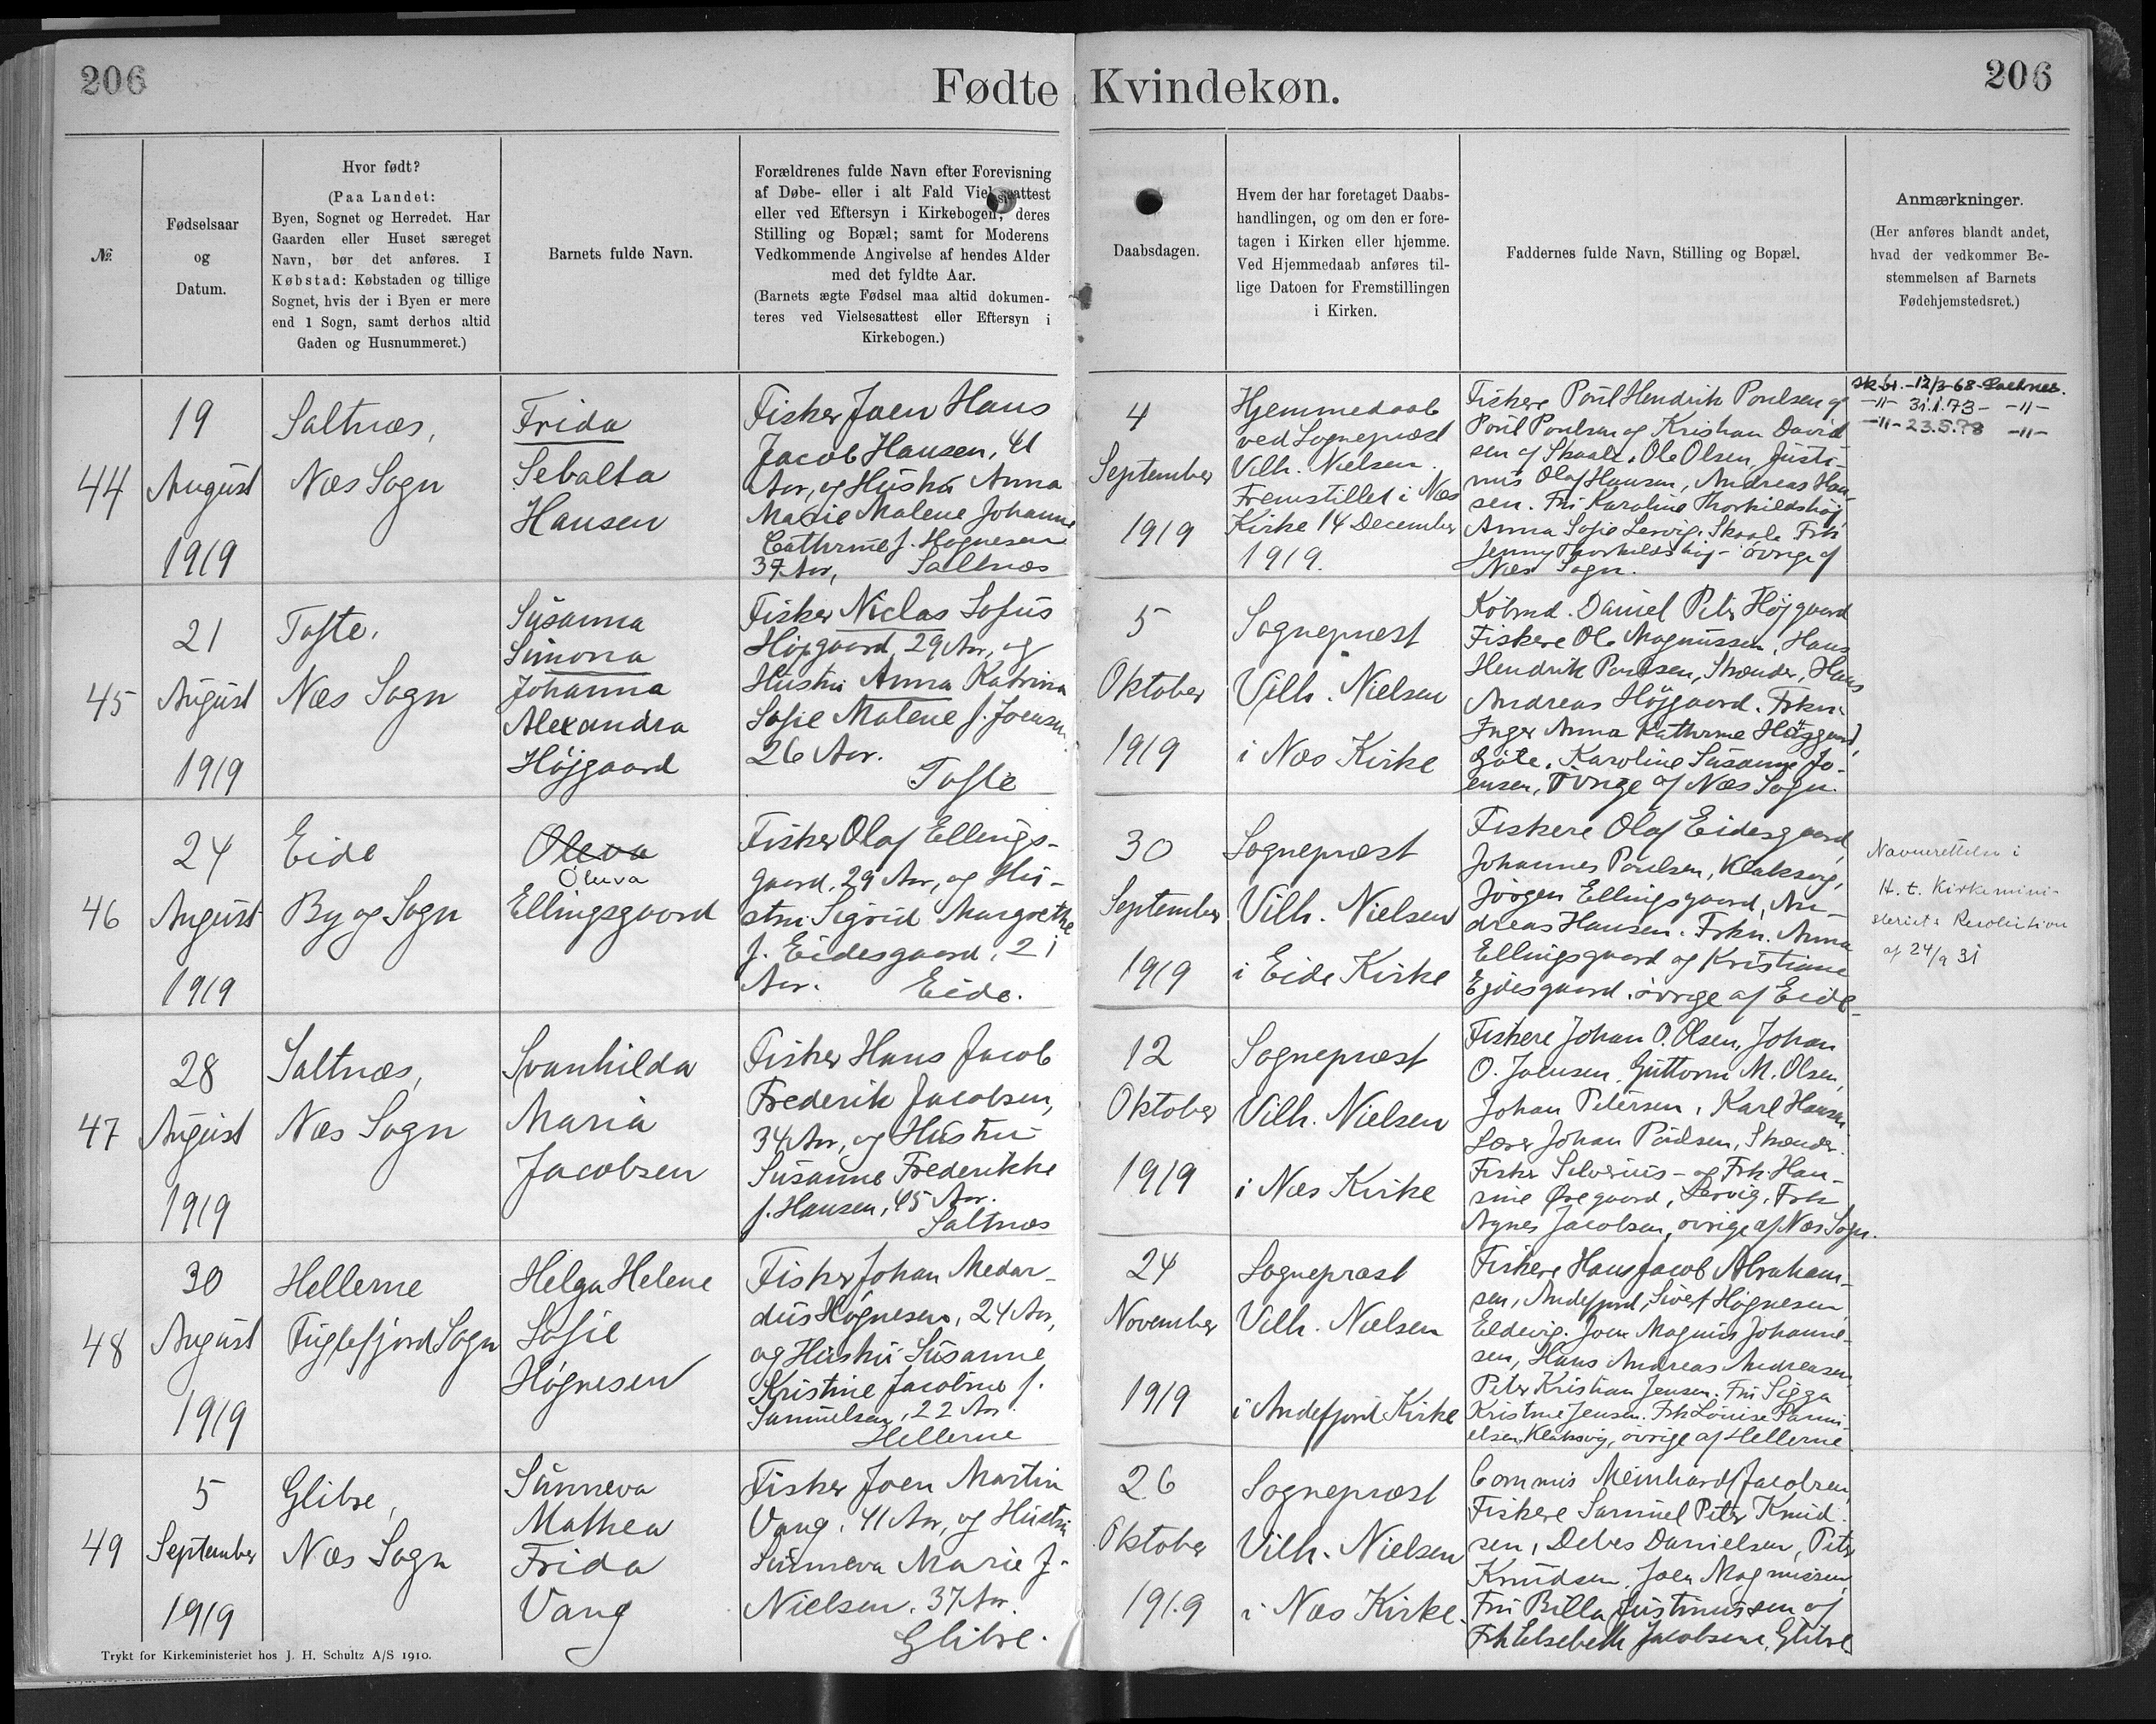 206
Fødte Kvindekøn.
206
№
Fødselsaar
og
Datum.
Hvor født?
(Paa Landet:
Byen, Sognet og Herredet. Har
Gaarden eller Huset særeget
Navn, bør det anføres. I
Købstad: Købstaden og tillige
Sognet, hvis der i Byen er mere
end 1 Sogn, samt derhos altid
Gaden og Husnummeret.)
Barnets fulde Navn.
Forældrenes fulde Navn efter Forevisning
af Døbe- eller i alt Fald Vielsesattest
eller ved Eftersyn i Kirkebogen; deres
Stilling og Bopæl; samt for Moderens
Vedkommende Angivelse af hendes Alder
med det fyldte Aar.
(Barnets ægte Fødsel maa altid dokumen-
teres ved Vielsesattest eller Eftersyn i
Kirkebogen.)
Daabsdagen.
Hvem der har foretaget Daabs-
handlingen, og om den er fore-
tagen i Kirken eller hjemme.
Ved Hjemmedaab anføres til-
lige Datoen for Fremstillingen
i Kirken.
Faddernes fulde Navn, Stilling og Bopæl.
Anmærkninger.
(Her anføres blandt andet,
hvad der vedkommer Be-
stemmelsen af Barnets
Fødehjemstedsret.)
44
19
August
1919
Saltnæs,
Næs Sogn
Frida
Sebalta
Hansen
Fisker Joen Hans
Jacob Hansen, 41
Aar, og Hustru Anna
Marie Malene Johanne
Cathrine f. Høgnesen
37 Aar, Saltnæs
4
September
1919
Hjemmedaab
ved Sognepræst
Vilh. Nielsen.
Fremstillet i Næs
Kirke 14 December
1919.
Fiskere Poul Hendrik Poulsen og
Poul Poulsen og Kristian David
sen af Skaale. Ole Olsen, Justi-
nus Olaf Hansen, Andreas Han-
sen. Fru Karoline Thorkildshøj,
Anna Sofie Lervig, Skaale Frk
Jenny Thorkildshøj - øvrige af
Næs Sogn.
sk.br. - 12/3-68 - Saltnes.
-"- 31.1.73 - -"-
-"- 23.5.78 -"-
45
21
August
1919
Tofte.
Næs Sogn
Susanna
Simona
Johanna
Alexandra
Højgaard
Fisker Niclas Sofus
Højgaard, 29 Aar, og
Hustru Anna Katrina
Sofie Malene f. Joensen.
26 Aar.
Tofte
5
Oktober
1919
Sognepræst
Vilh. Nielsen
i Næs Kirke
Købmd. Daniel Peter Højgaard
Fiskere Ole Magnussen, Hans
Hendrik Poulsen, Strænder, Hans
Andreas Højgaard. Frkn.
Inger Anna Kathrine Højgaard,
Gøte, Karoline Susanne Jo-
ensen, Øvrige af Næs Sogn.
46
24
August
1919
Eide
By og Sogn
Oleva
Oluva
Ellingsgaard
Fisker Olaf Ellings-
gaard, 29 Aar, og Hu-
stru Sigrid Margrethe
f. Eidesgaard, 21
Aar. Eide.
30
September
1919
Sognepræst
Vilh. Nielsen
i Eide Kirke
Fiskere Olaf Eidesgaard,
Johannes Poulsen, Klaksvig,
Jørgen Ellingsgaard, An-
dreas Hansen. Frkn. Anna
Ellingsgaard og Kristiane
Ejdesgaard. øvrige af Eide
Navnerettelse i
H. t. Kirkemini-
steriets Resolution
af 24/9 31
47
28
August
1919
Saltnæs,
Næs Sogn
Svanhilda
Maria
Jacobsen
Fisker Hans Jacob
Frederik Jacobsen,
34 Aar, og Hustru
Susanne Frederikke
f. Hansen, 45 Aar.
Saltnæs
12
Oktober
1919
Sognepræst
Vilh. Nielsen
i Næs Kirke
Fiskere Johan O. Olsen, Johan
O. Joensen, Guttorm M. Olsen,
Johan Petersen, Karl Hansen
Lærer Johan Poulsen, Strænder.
Fisker Silverius - og Frk. Han-
sine Øregaard, Lervig, Frk
Agnes Jacobsen, øvrige af Næs Sogn.
48
30
August
1919
Hellerne
Fuglefjord Sogn
Helga Helene
Sofie
Høgnesen
Fisker Johan Medar-
dus Høgnesen, 24 Aar,
og Hustru Susanne
Kristine Jacobine f.
Samuelsen, 22 Aar.
Hellerne
24
November
1919
Sognepræst
Vilh. Nielsen
i Andefjord Kirke
Fiskere Hans Jacob Abraham-
sen, Andefjord, Sivert Høgnesen
Eldevig. Joen Magnus Johanne-
sen, Hans Andreas Andreasen,
Peter Kristian Jensen. Fru Sigga
Kristine Jensen. Frk Louise
Klaksvig, øvrige af Hellerne.
49
5
September
1919
Glibre,
Næs Sogn
Sunneva
Mathea
Frida
Vang
Fisker Joen Martin
Vang. 41 Aar, og Hustru
Sunneva Marie f.
Nielsen. 37 Aar.
Glibre.
26
Oktober
1919
Sognepræst
Vilh. Nielsen
i Næs Kirke.
Commis Meinhard Jacobsen,
Fiskere Samuel Peter Knud-
sen, Debes Danielsen, Peter
Knudsen, Joen Magnussen,
Fru Billa Justinussen og
Frk Elsebeth Jacobsen, Glibre
Trykt for Kirkeministeriet hos J. H. Schultz A/S 1910.